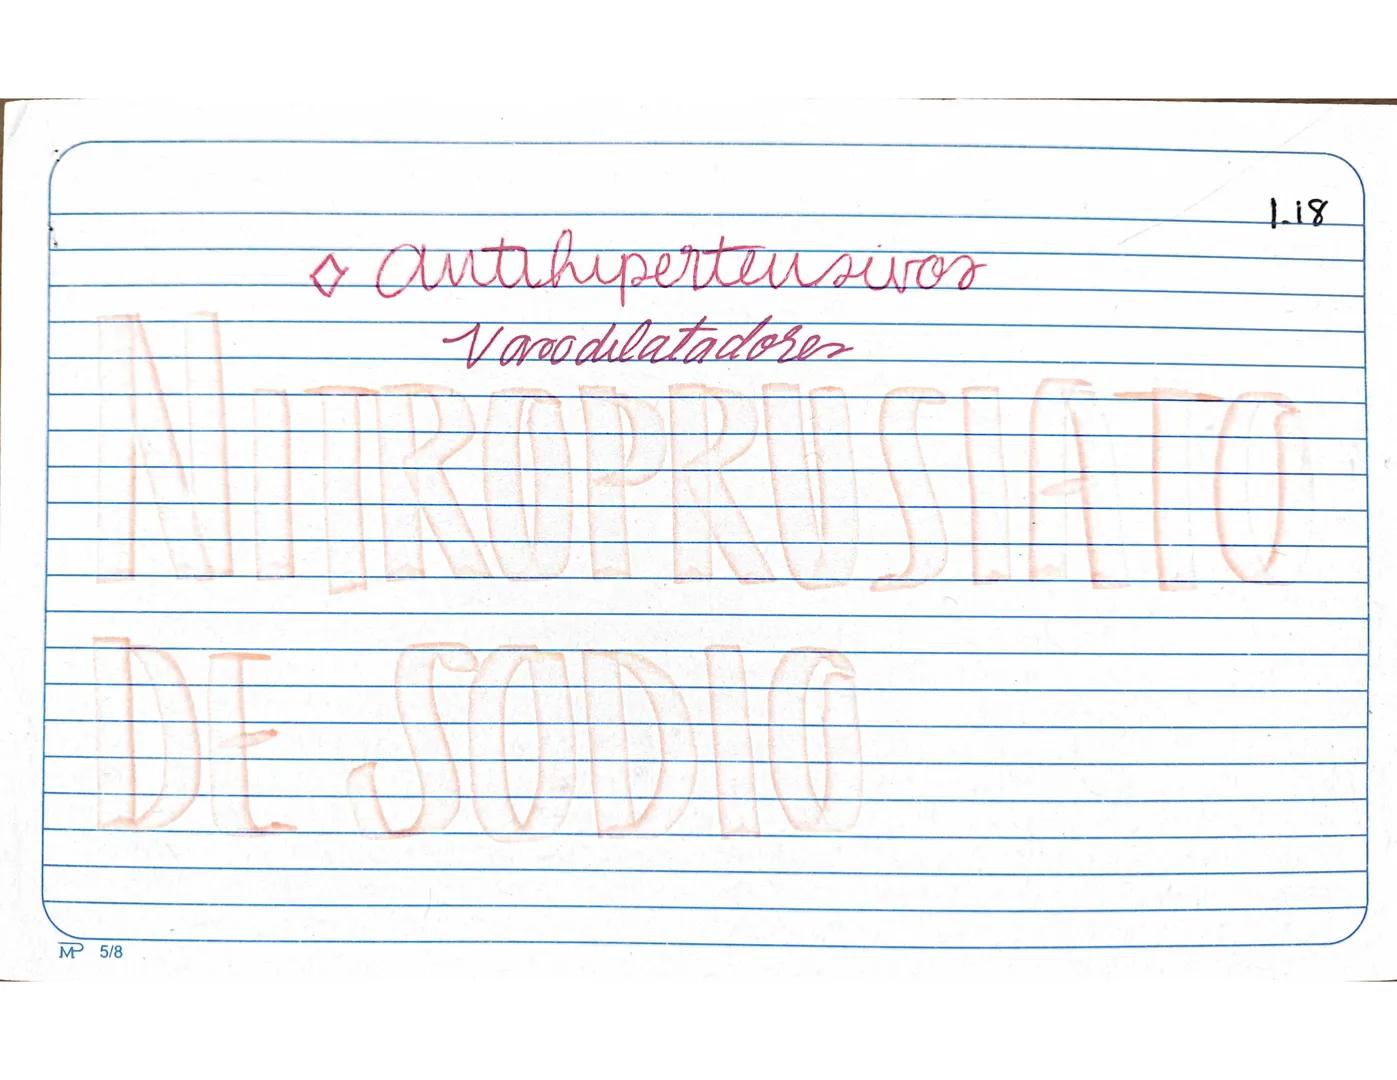 1.18
◇ Antihipertensivos
Vasodilatadores
NITROPRUSIATO
DE SODIO
MP 5/8